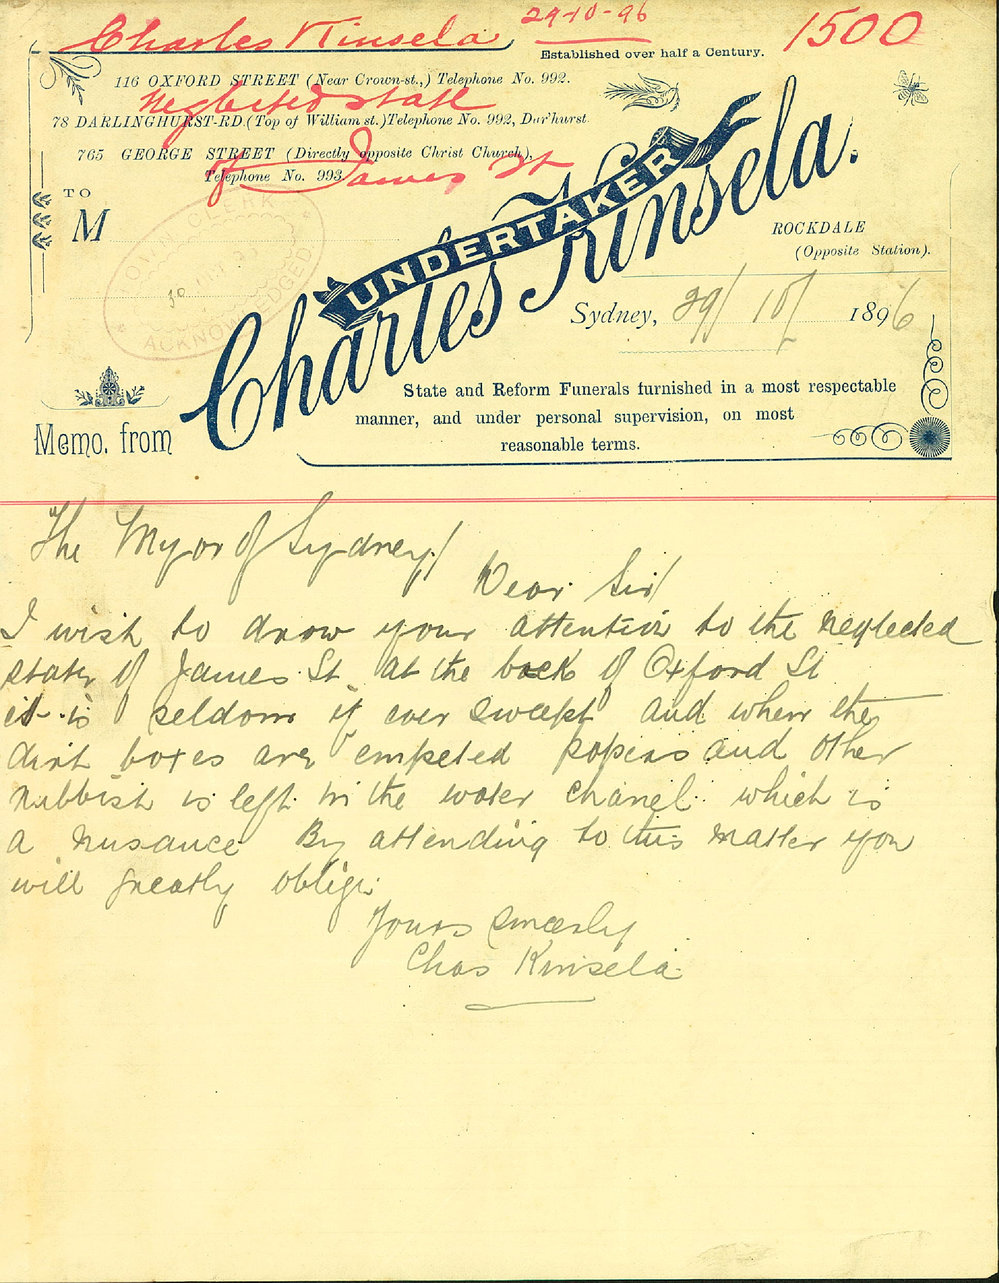 Charles Kinsela
29-10-96
1500
Established over half a Century.
116 OXFORD STREET (Near Crown-st.,) Telephone No. 992.
Neglected state
78 DARLINGHURST-RD.(Top of William st.)Telephone No. 992, Dar'hurst.
765 GEORGE STREET (Directly opposite Christ Church),
of James St
Telephone No. 993
TO
M
TOWN CLERK
ACKNOWLEDGED
UNDERTAKER
Charles Kinsela.
ROCKDALE
(Opposite Station).
Sydney, 29/10/1896
State and Reform Funerals furnished in a most respectable
manner, and under personal supervision, on most
reasonable terms.
Memo. from
The Myor of Sydney/
Dear Sir/
I wish to draw your attention to the neglected
state of James St at the back of Oxford St
it is seldom if ever swept and when the
dirt boxes are empeted papers and other
rubbish is left in the water chanel which is
a nusance By attending to this matter you
will greatly oblige
Yours Sincerly
Chas Kinsela